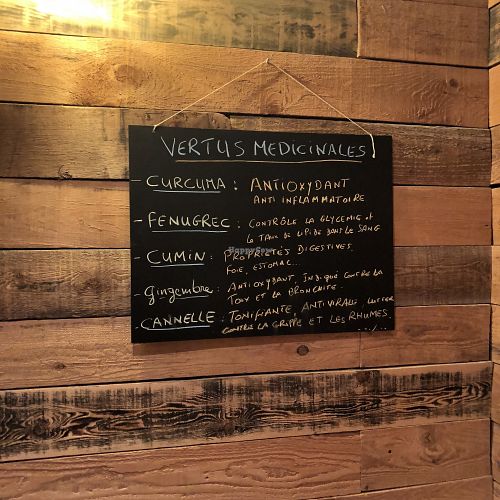 VERTUS MEDICINALES
- CURCUMA : ANTIOXYDANT
ANTI INFLAMMATOIRE
- FENUGREC : CONTRÔLE LA GLYCEMIE et
le TAUX DE LIPIDE DANS LE SANG
- CUMIN : PROPRIETÉS DIGESTIVES
FOIE, ESTOMAC..
- gingembre : ANTIOXYDANT, INDIQUÉ CONTRE LA
TOUX ET LA BRONCHITE.
- CANNELLE : TONIFIANTE, ANTIVIRALE, LUTTER
CONTRE LA GRIPPE ET LES RHUMES.
.../..
HappyCow